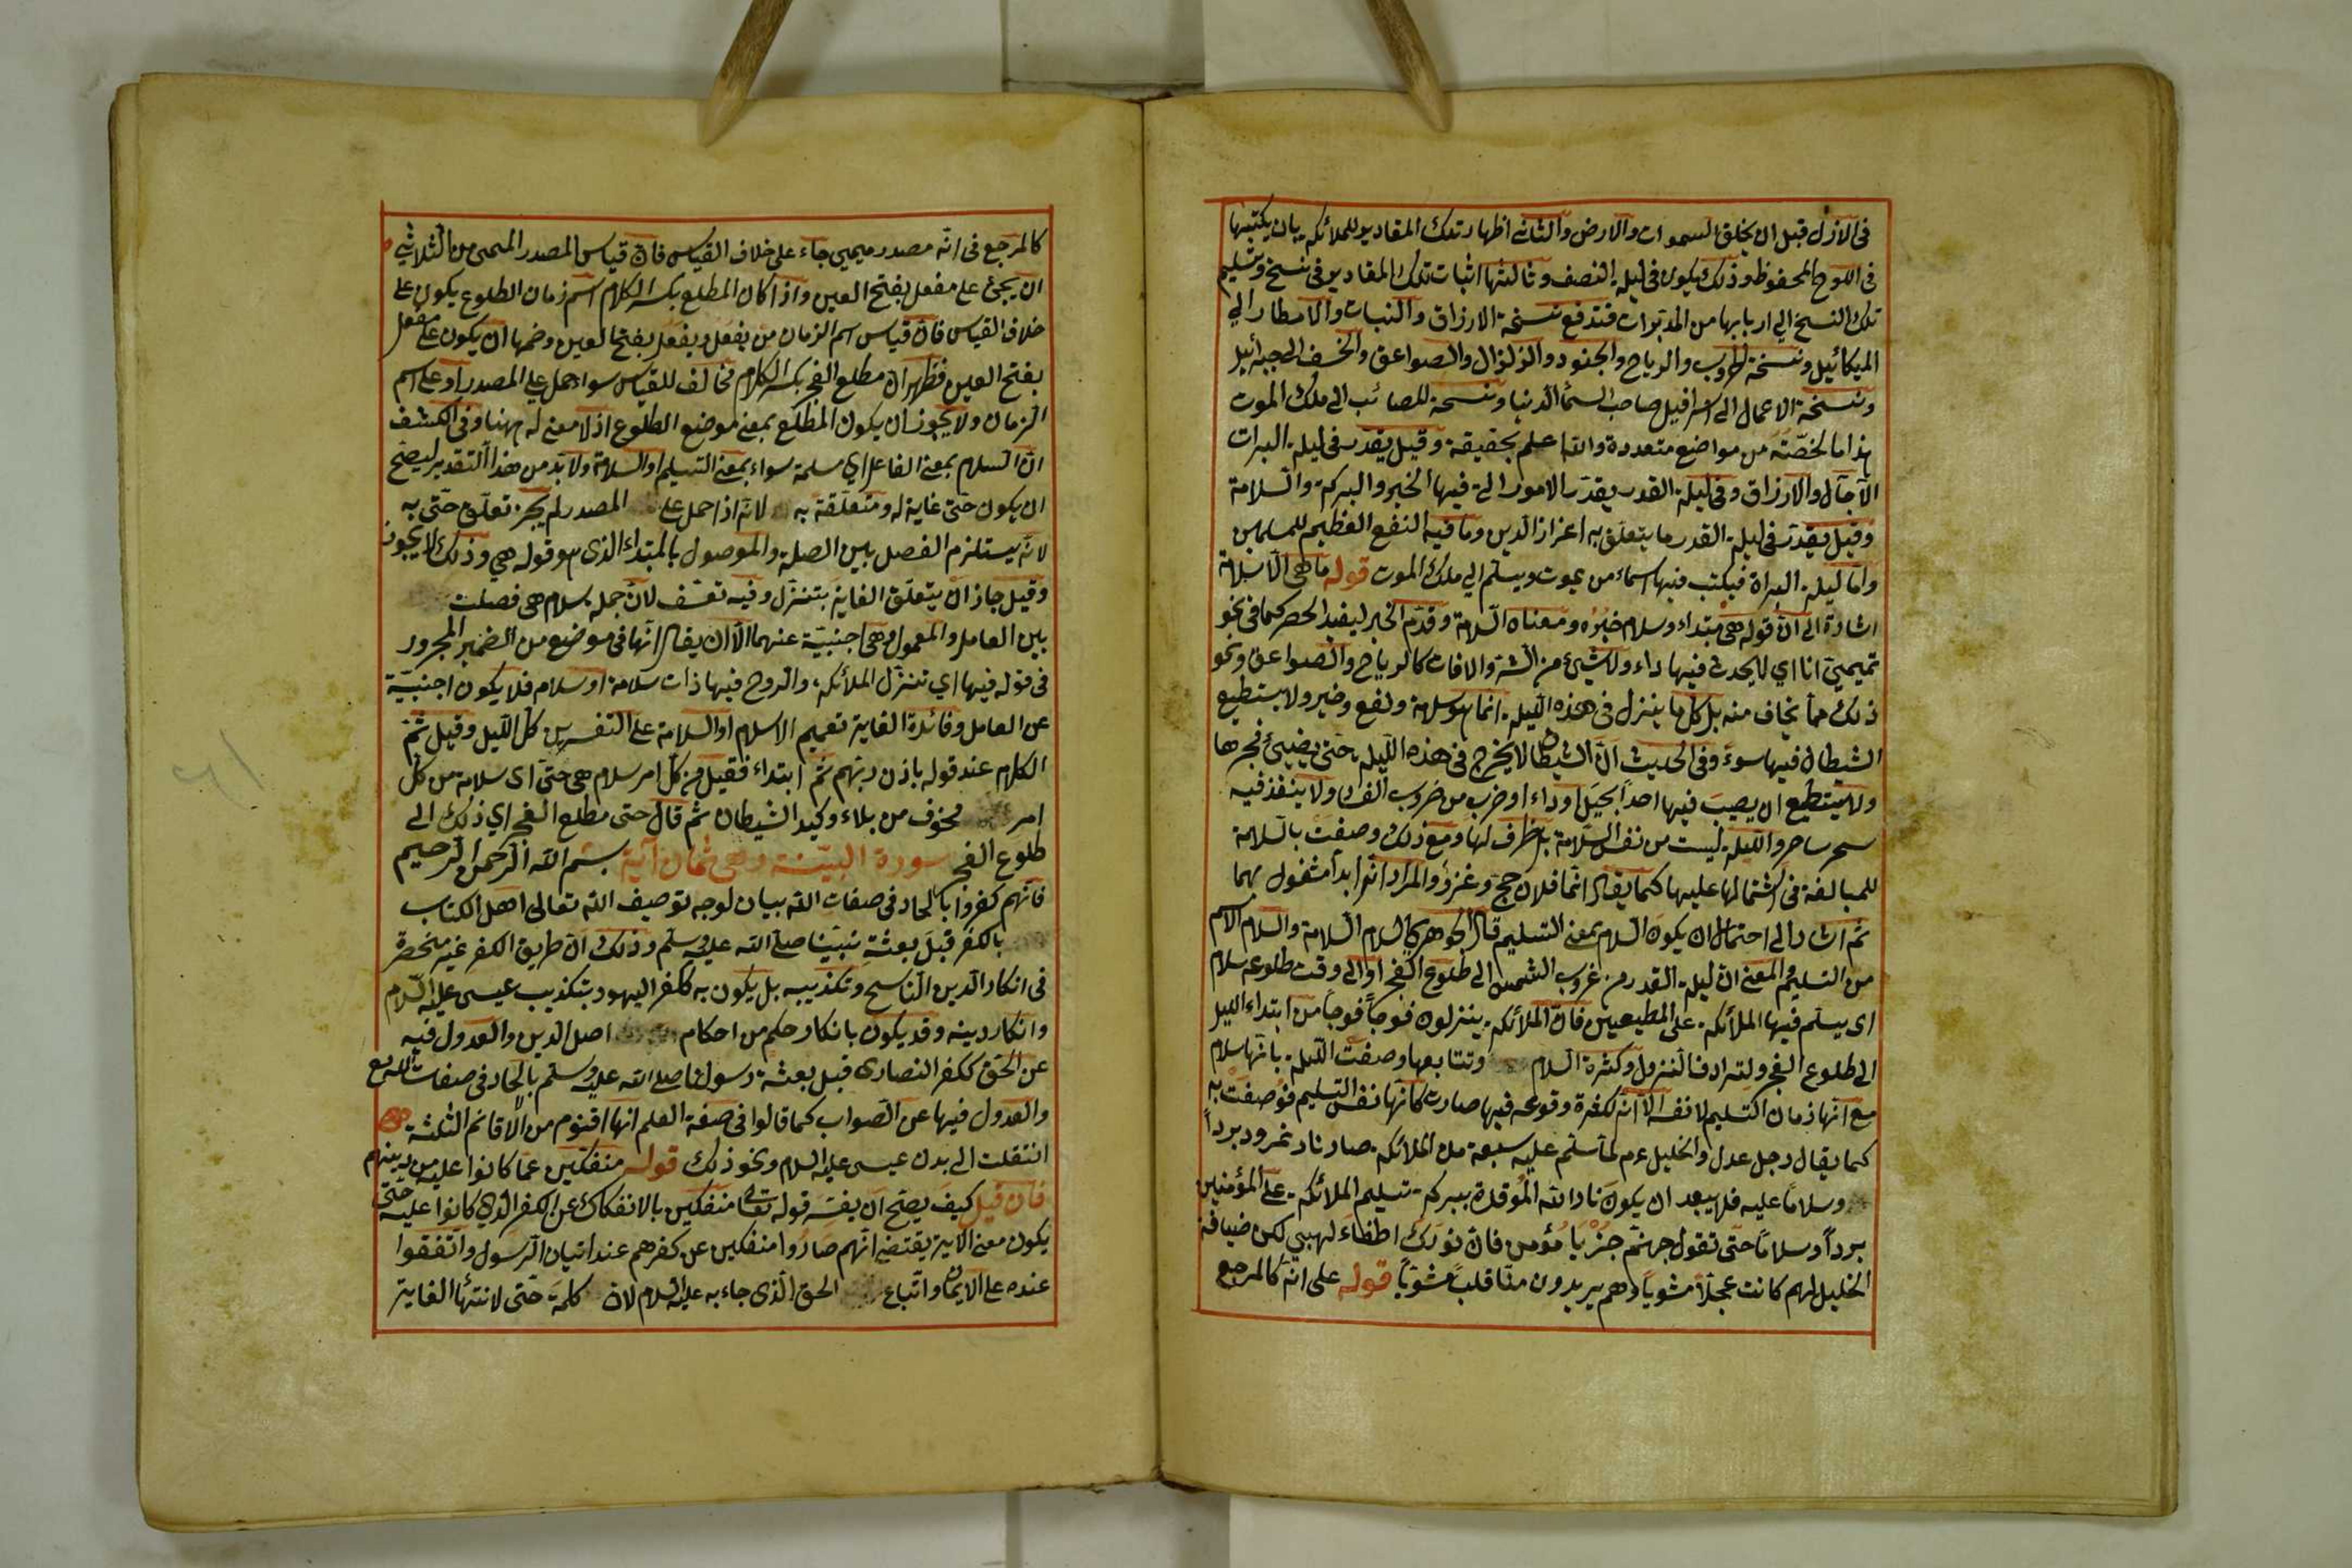 فى الازل قبل ان يخلق السموات والارض والثانى اظهار تلك المقادير للملائكة بان يكتبها
فى اللوح المحفوظ وذلك يكون فى ليلة النصف وثالثها اثبات تلك المقادير فى نسخ وتسليم
تلك النسخ الي اربابها من المدبرات فتدفع نسخة الارزاق والنبات والامطار الي
الميكائيل ونسخة الحروب والرياح والجنود والزلزال والصواعق والخسف الى جبرائيل
ونسخة الاعمال الى اسرافيل صاحب السماء الدنيا ونسخة للمصائب الى ملك الموت
هذا ما لخصته من مواضع متعددة والله اعلم بحقيقة وقيل يقدر فى ليلة البرات
الآجال والارزاق وفى ليلة القدر يقدر الامور التي فيها الخير والبركة والسلامة
وقيل يقدر فى ليلة القدر ما يتعلق به اعزاز الدين وما فيه النفع العظيم للمسلمين
واما ليلة البراة فيكتب فيها اسماء من يموت ويسلم الي ملك الموت قوله ما هى الا سلامة
اشارة الى ان قوله هى مبتداء وسلام خبره ومعناه السلامة وقدم الخبر ليفيد الحصر كما فى نحو
تميمي انا اي لا يحدث فيها داء ولا شيئ من الشر والافات كالرياح والصواعق ونحو
ذلك مما يخاف منه بل كل ما ينزل فى هذه الليلة انما هو سلامة ونفع وخير ولا يستطيع
الشيطان فيها سوء وفى الحديث ان الشيطان لا يخرج فى هذه الليلة حتى يضيئ فجرها
ولا يستطيع ان يصيب فيها احدا بخبل او داء او ضرب من ضروب الفساد ولا ينفذ فيه
سحر ساحر والليلة ليست من نفس السلامة بل ظرف لها ومع ذلك وصفت بالسلامة
للمبالغة فى اشتمالها عليها كما يقال انما فلان حج وغزو والمراد انه ابدا مشغول بهما
ثم اشار الى احتمال ان يكون السلام بمعنى التسليم قال الجوهري السلام السلامة والسلام الاسم
من التسليم والمعنى ان ليلة القدر من غروب الشمس الى طلوع الفجر او الى وقت طلوعه سلام
اى يسلم فيها الملائكة على المطيعين فان الملائكة ينزلون فوجا فوجا من ابتداء الليل
الى طلوع الفجر ولترادف النزول وكثرة السلام وتتابعها وصفت الليلة بانها سلام
مع انها زمان التسليم لا نفسه الا انه لكثرة وقوعه فيها صارت كانها نفس التسليم فوصفت به
كما يقال رجل عدل والخليل عم لما سلم عليه سبعة من الملائكة صار نار نمرود بردا
وسلاما عليه فلا يبعد ان يكون نار الله الموقدة ببركة تسليم الملائكة على المؤمنين
بردا وسلاما حتى تقول جهنم جز يا مؤمن فان نورك اطفاء لهبي لكن ضيافة
الخليل لهم كانت عجلا مشويا وهم يريدون منا قلبا مشويا قوله على انه كالمرجع
كالمرجع فى انه مصدر ميمي جاء على خلاف القياس فان قياس المصدر الميمى من الثلاثي
ان يجئ على مفعل بفتح العين واذا كان المطلع بكسر اللام اسم زمان الطلوع يكون على
خلاف القياس فان قياس اسم الزمان من يفعل ويفعل بفتح العين وضمها ان يكون على مفعل
بفتح العين فظهر ان مطلع الفجر بكسر اللام مخالف للقياس سواء حمل على المصدر او على اسم
الزمان ولا يجوز ان يكون المطلع بمعنى موضع الطلوع اذ لا معنى له ههنا وفى الكشف
ان السلام بمعنى الفاعل اي مسلمة سواء بمعنى التسليم او السلامة ولا بد من هذا التقدير ليصح
ان يكون حتى غاية له ومتعلقة به لانه اذا حمل على المصدر لم يجز تعلق حتى به
لانه يستلزم الفصل بين الصلة والموصول بالمبتداء الذى هو قوله هي وذلك لا يجوز
وقيل جاز ان يتعلق الغاية بتنزل وفيه تعسف لان جملة سلام هى فصلت
بين العامل والمعمول وهى اجنبية عنهما الا ان يقال انها فى موضع من الضمير المجرور
فى قوله فيها اي تنزل الملائكة والروح فيها ذات سلامة او سلام فلا يكون اجنبية
عن العامل وفائدة الغاية تعميم الاسلام او السلامة على التفسيرين كل الليل وقيل تم
الكلام عند قوله باذن ربهم ثم ابتداء فقيل من كل امر سلام هى حتى اى سلامة من كل
امر مخوف من بلاء وكيد الشيطان ثم قال حتى مطلع الفجر اي ذلك الى
طلوع الفجر سورة البينة وهى ثمان آية بسم الله الرحمن الرحيم
فانهم كفروا بالحاد فى صفات الله بيان لوجه توصيف الله تعالى اهل الكتاب
بالكفر قبل بعثة نبينا صلى الله عليه وسلم وذلك ان طريق الكفر غير منحصرة
فى انكار الدين الناسخ وتكذيبه بل يكون به ككفر اليهود بتكذيب عيسى عليه السلام
وانكار دينه وقد يكون بانكار حكم من احكام اصل الدين والعدول فيه
عن الحق ككفر النصارى قبل بعثة رسولنا صلى الله عليه وسلم بالحاد فى صفات الله تع
والعدول فيها عن الصواب كما قالوا فى صفة العلم انها اقنوم من الاقانم الثلثة
انتقلت الى بدن عيسى عليه السلام ونحو ذلك قوله منفكين عما كانوا عليه من دينهم
فان قيل كيف يصح ان يفسر قوله تعالى منفكين بالانفكاك عن الكفر الذي كانوا عليه حتى
يكون معنى الاية يقتضى انهم صاروا منفكين عن كفرهم عند اتيان الرسول واتفقوا
عنده على الايمان واتباع الحق الذى جاء به عليه السلام لان كلمة حتى لانتهاء الغاية